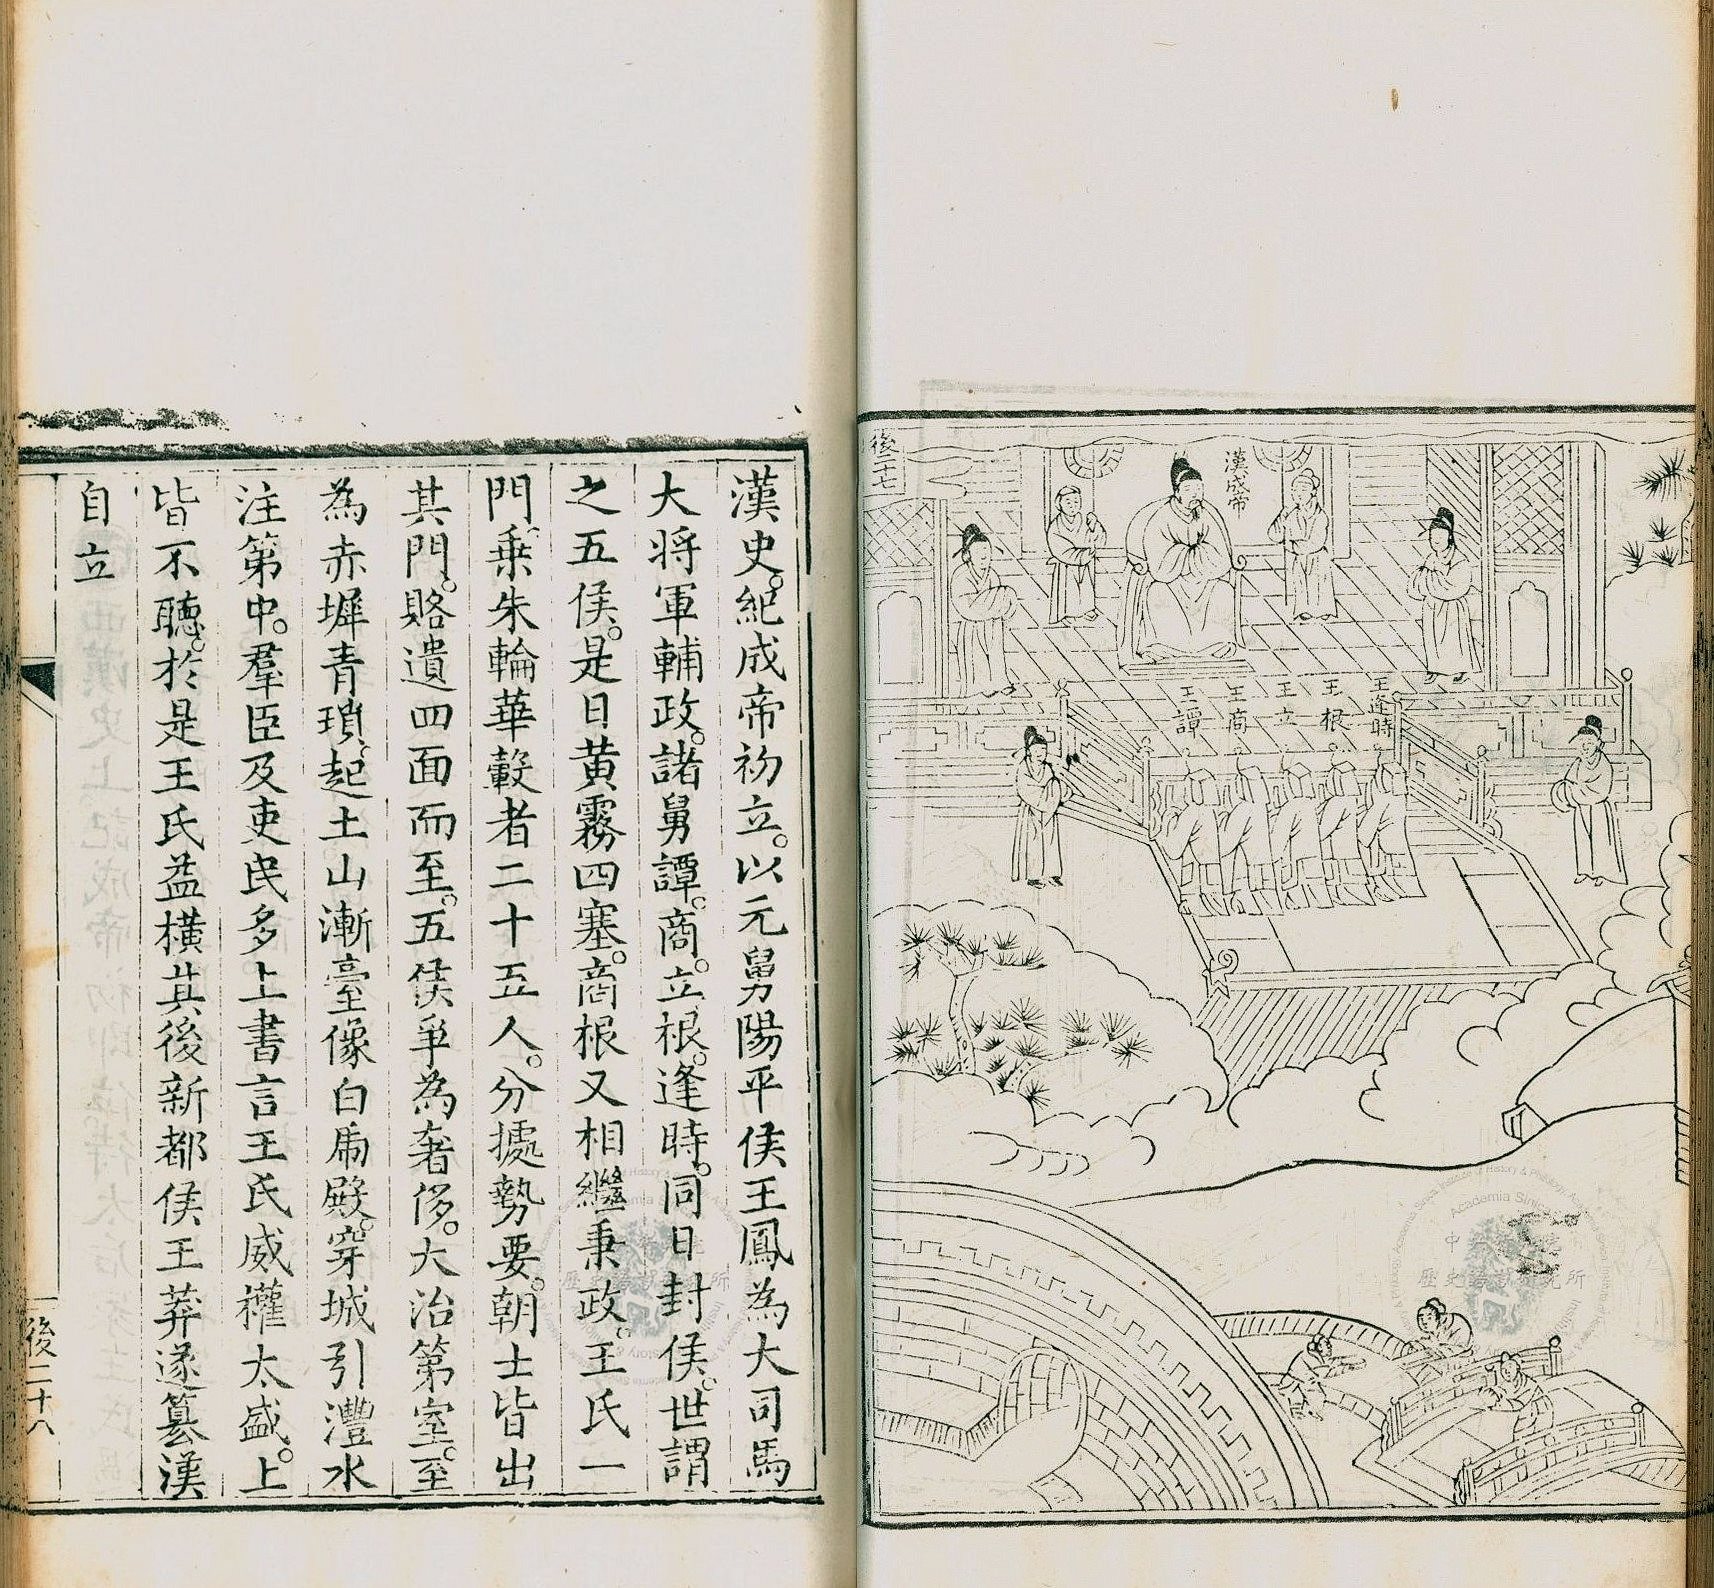 後二十七
漢成帝
王逢時
王根
王立
王商
王譚
漢史。紀成帝初立。以元舅陽平侯王鳳為大司馬
大將軍輔政。諸舅譚。商。立。根。逢時。同日封侯。世謂
之五侯。是日黃霧四塞。商根又相繼秉政。王氏一
門。乗朱輪華轂者二十五人。分據勢要。朝士皆出
其門。賂遺四面而至。五侯爭為奢侈。大治第室。至
為赤墀青瑣。起土山漸臺像白虎殿。穿城引灃水
注第中。羣臣及吏民多上書言王氏威權太盛。上
皆不聽。於是王氏益橫其後新都侯王莽遂篡漢
自立
後二十八